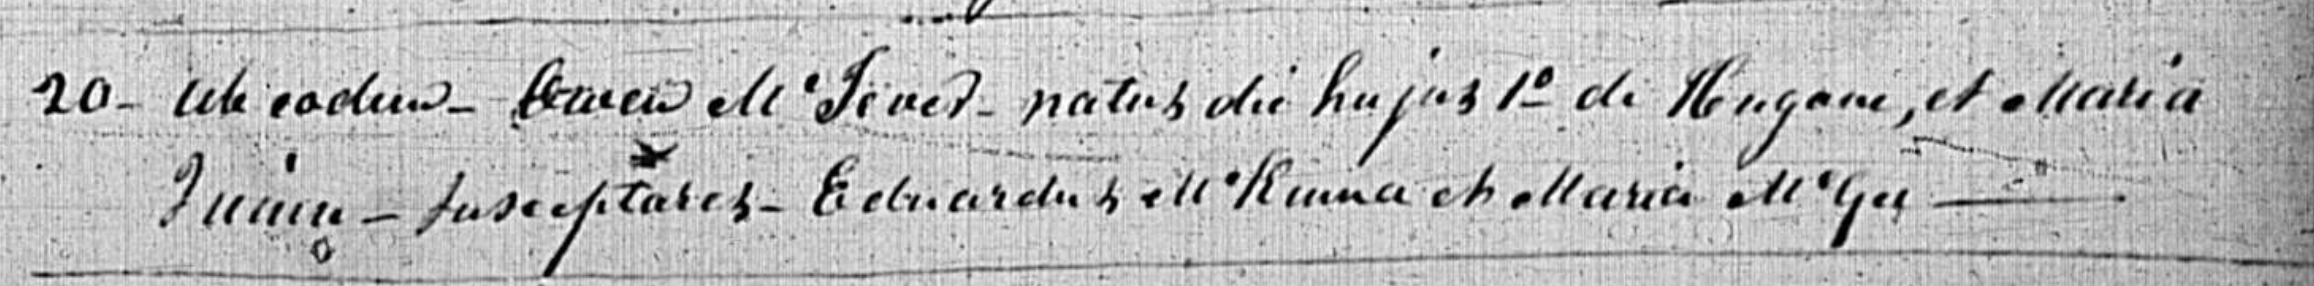 20- Ab eodem - Owen McIever - natus die hujus 1º de Hugone, et Maria
Quinn - Susceptares - Eduardus McKenna et Maria McGee